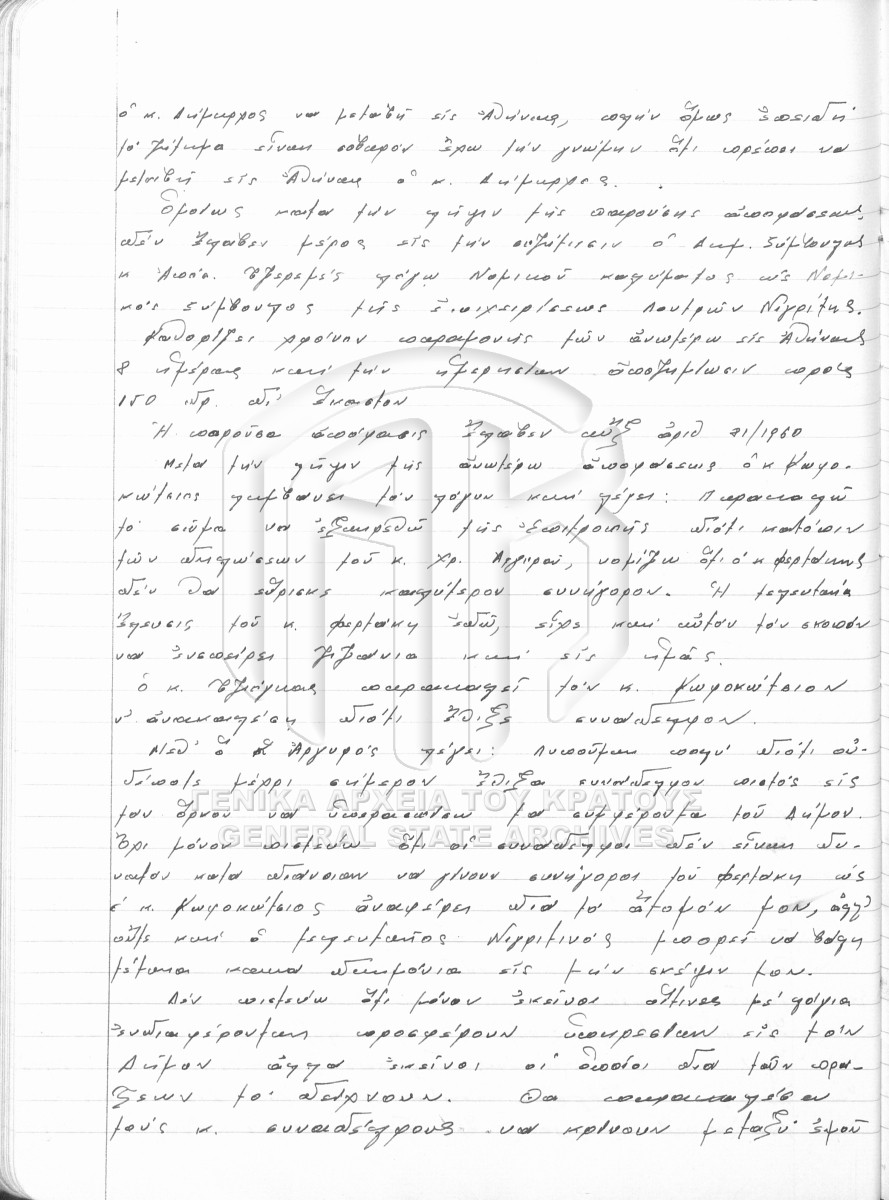 ὁ κ. Δήμαρχος νά μεταβῆ εἰς Ἀθήνας, πλήν ὅμως ἐπειδή
τό ζήτημα εἶναι σοβαρόν ἔχω τήν γνώμην ὅτι πρέπει νά
μεταβῆ εἰς Ἀθήνας ὁ κ. Δήμαρχος.
Ὁμοίως κατά τήν λῆψιν τῆς παρούσης ἀποφάσεως
δέν ἔλαβεν μέρος εἰς τήν συζήτησιν ὁ Δημ. Σύμβουλος
κ Ἀποστ. Τζερεμές λόγῳ Νομικοῦ κωλύματος ὡς Νομι-
κός Σύμβουλος τῆς Ἐπιχειρίσεως Λουτρῶν Νιγρίτης.
Καθορίζει χρόνον παραμονῆς τῶν ἀνωτέρω εἰς Ἀθήνας
8 ἡμέρας καί τήν ἡμερησίαν ἀποζημίωσιν πρός
150 δρ. δι' ἕκαστον
Ἡ παροῦσα ἀπόφασις ἔλαβεν αὔξ ἀριθ 71/1960
Μετά τήν λῆψιν τῆς ἀνωτέρω ἀποφάσεως ὁ κ Κωφο-
κώτσιος λαμβάνει τόν λόγον καί λέγει: Παρακαλῶ
τό σῶμα νά ἐξαιρεθῶ τῆς ἐπιτροπῆς διότι κατόπιν
τῶν δηλώσεων τοῦ κ. Χρ. Ἀργυροῦ, νομίζω ὅτι ὁ κ Φερτάκης
δέν θά εὕρισκε καλύτερον συνήγορον. Ἡ τελευταία
ἔλευσις τοῦ κ. Φερτάκη ἐδῶ, εἶχε καί αὐτόν τόν σκοπόν
νά ἐνσπείρει ζιζάνια καί εἰς ἡμᾶς.
Ὁ κ. Τζιάγκας παρακαλεῖ τόν κ. Κωφοκώτσιον
ν' ἀνακαλέση διότι ἔθιξε συνάδελφον.
Μεθ' ὅ ὁ κ Ἀργυρός λέγει: Λυποῦμαι πολύ διότι οὐ-
δέποτε μέχρι σήμερον ἔθιξα συνάδελφον πιστός εἰς
τόν ὅρκον νά ὑπερασπίσω τά συμφέροντα τοῦ Δήμου.
Ὄχι μόνον πιστεύω ὅτι οἱ συνάδελφοι δέν εἶναι δυ-
νατόν κατά διάνοιαν νά γίνουν συνήγοροι τοῦ Φερτάκη ὡς
ὁ κ. Κωφοκώτσιος ἀναφέρει διά τό ἄτομόν μου, ἀλλ'
οὔτε καί ὁ τελευταῖος Νιγριτινός μπορεῖ νά βάλη
τέτοια κακά δαιμόνια εἰς τήν σκέψιν του.
Δέν πιστεύω ὅτι μόνον ἐκεῖνοι οἵτινες μέ λόγια
ἐνδιαφέρονται προσφέρουν ὑπηρεσίαν εἰς τόν
Δῆμον ἀλλά ἐκεῖνοι οἱ ὁποῖοι διά τῶν πρά-
ξεων τό δείχνουν. Θά παρακαλέσω
τούς κ. συναδέλφους νά κρίνουν μεταξύ ἐμοῦ
ΓΕΝΙΚΑ ΑΡΧΕΙΑ ΤΟΥ ΚΡΑΤΟΥΣ
GENERAL STATE ARCHIVES